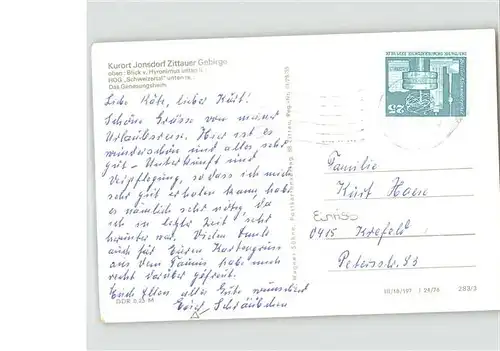 Kurort Jonsdorf Zittauer Gebirge
oben: Blick v. Hyronimus unten li.
HOG "Schweizertal" unten re.
Das Genesungsheim
Liebe Käte, lieber Kurt!
Schöne Grüsse von meiner
Urlaubsreise. Hier ist es
wunderschön und alles sehr
gut - Unterkunft und
Verpflegung, so dass ich mich
sehr gut erholen kann, hab
es nämlich sehr nötig, da
ich in letzter Zeit sehr
herunter war. Vielen Dank
auch für Euren Kartengruss
aus dem Taunus, habe mich
recht darüber gefreut.
Euch Allen alles Gute wünscht
Erich Schäubchen
DDR 0,25 M
25
Familie
Kurt Haese
0415 Krefeld
Petersstr. 83
III/18/197
288/3